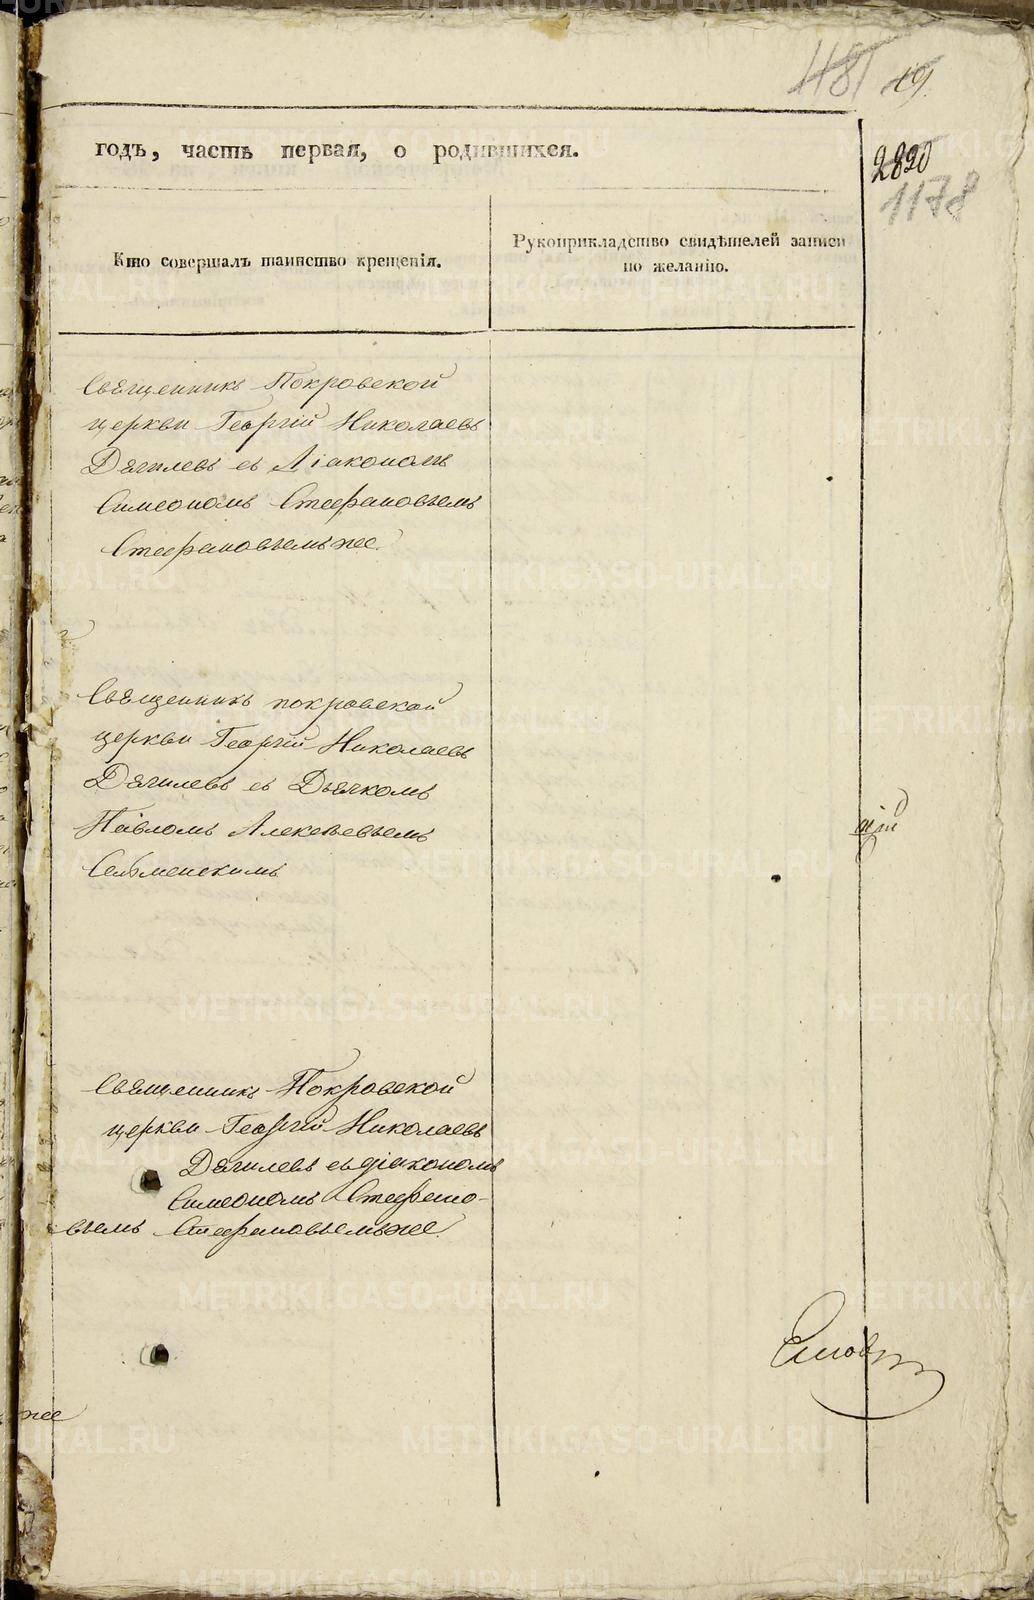 481 19.
годъ, часть первая, о родившихся.
2820
1178
Кто совершалъ таинство крещенія.
Рукоприкладство свидѣтелей записи
по желанію.
Священникъ Покровской
церкви Георгій Николаевъ
Дягилевъ съ Діакономъ
Симеономъ Стефановымъ
Стефановымъ же.
Священникъ покровской
церкви Георгій Николаевъ
Дягилевъ съ Дьячкомъ
Павломъ Алексѣевымъ
Селменскимъ
Священникъ Покровской
церкви Георгій Николаевъ
Дягилевъ съ діакономъ
Симеономъ Стефано-
вымъ Стефановымъ же.
же
METRIKI.GASO-URAL.RU